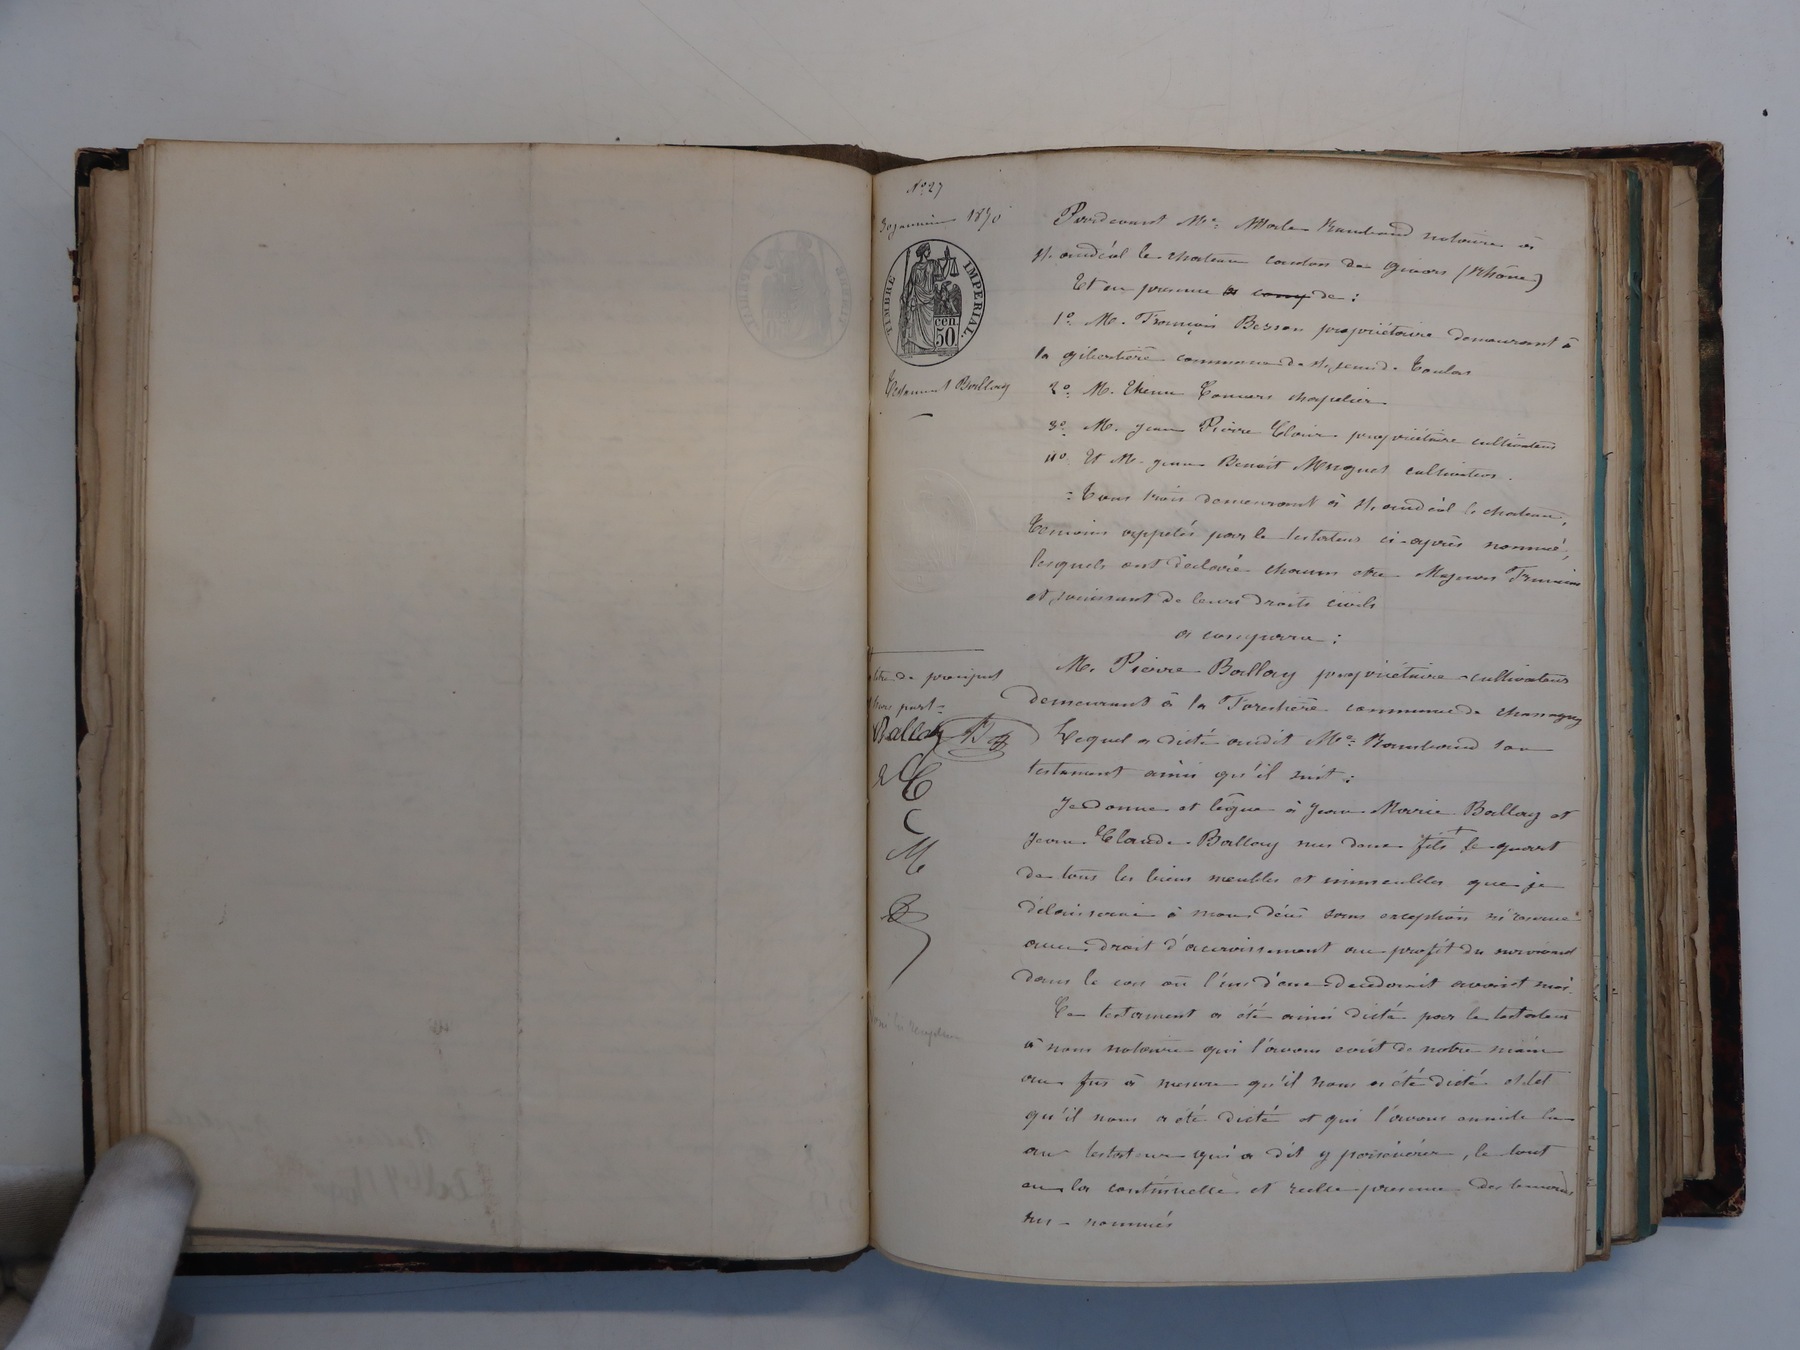 N° 27
30 janvier 1870
TIMBRE IMPERIAL
cen.
50
Testament Ballay
Pardevant Me notaire à
St andéol le chateau canton de givors (Rhône)
Et en presence de :
1° M. François Besson propriétaire demeurant à
la commune de St jean de Toulas
2° M. Etienne chapelier
3° M. jean Pierre propriétaire cultivateur
4° Et M. jean Benoit cultivateur.
Tous trois demeurant à St andéol le chateau,
Temoins appelés par le testateur ci-après nommé,
lesquels ont déclaré chacun etre Majeurs Francais
et jouissant de leurs droits civils
a comparu :
M. Pierre Ballay propriétaire-cultivateur
demeurant à la commune de chassagny
Lequel a dicté audit Me son
testament ainsi qu'il suit :
Je donne et lègue à jean Marie Ballay et
jean Claude Ballay mes deux fils le quart
de tous les biens meubles et immeubles que je
délaisserai à mon décès sans exception ni réserve
avec droit d'accroissement au profit du survivant
dans le cas où l'un d'eux décéderait avant moi.
Ce testament a été ainsi dicté par le testateur
à nous notaire qui l'avons écrit de notre main
au fur à mesure qu'il nous a été dicté et tel
qu'il nous a été dicté et qui l'avons ensuite lu
au testateur qui a dit y persévérer, le tout
en la continuelle et réelle presence des temoins
sus-nommés
titre de preciput
hors part
Ballay
C
M